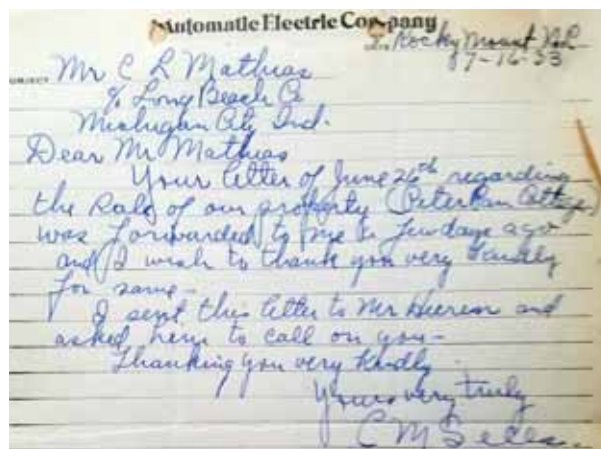 Automatic Electric Company
Rocky Mount N.C.
7-16-33
SUBJECT
Mr C L Mathias
% Long Beach Co
Michigan City Ind.
Dear Mr Mathias
Your letter of June 26th regarding
the sale of our property (Peter Pan Cottage)
was forwarded to me a few days ago
and I wish to thank you very kindly
for same -
I sent this letter to Mr and
asked him to call on you -
Thanking you very kindly
Yours very truly
C M